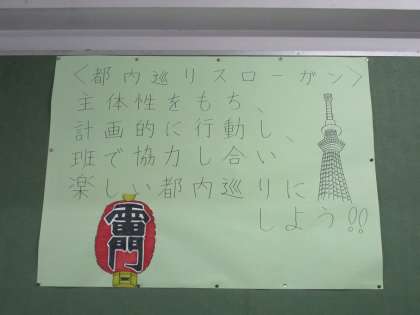 〈都内巡りスローガン〉
主体性をもち、
計画的に行動し、
班で協力し合い
楽しい都内巡りに
しよう!!
雷門